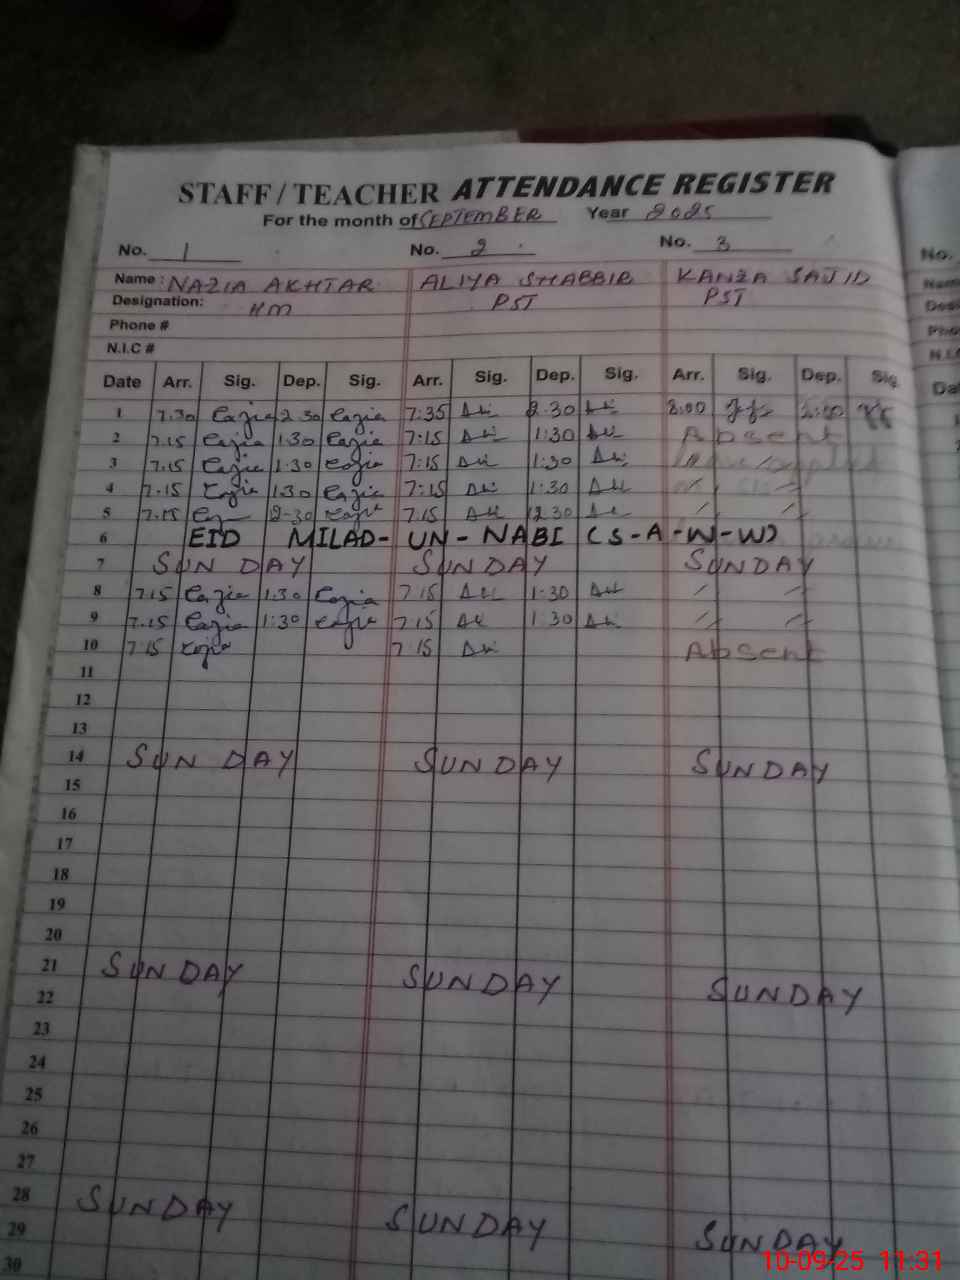 STAFF / TEACHER ATTENDANCE REGISTER
For the month of SEPTEMBER Year 2025
No. 1 No. 2 No. 3 No.
Name: NAZIA AKHTAR ALIYA SHABBIR KANZA SAJID
Designation: HM PST PST
Phone #
N.I.C #
Date Arr. Sig. Dep. Sig. Arr. Sig. Dep. Sig. Arr. Sig. Dep. Sig.
1 7.30 2.30 7:35 2.30 8:00 2:00
2 7.15 1:30 7:15 1:30 Absent
3 7.15 1:30 7:15 1:30
4 7.15 1.30 7:15 1:30 〃 〃
5 7.15 12-30 7.15 12.30 〃 〃
6 EID MILAD-UN-NABI (S-A-W-W)
7 SUNDAY SUNDAY SUNDAY
8 7.15 1.30 7.15 1.30 〃 〃
9 7.15 1:30 7.15 1:30 〃 〃
10 7.15 7.15 Absent
11
12
13
14 SUNDAY SUNDAY SUNDAY
15
16
17
18
19
20
21 SUNDAY SUNDAY SUNDAY
22
23
24
25
26
27
28 SUNDAY SUNDAY SUNDAY
29
30
10-09-25 11:31